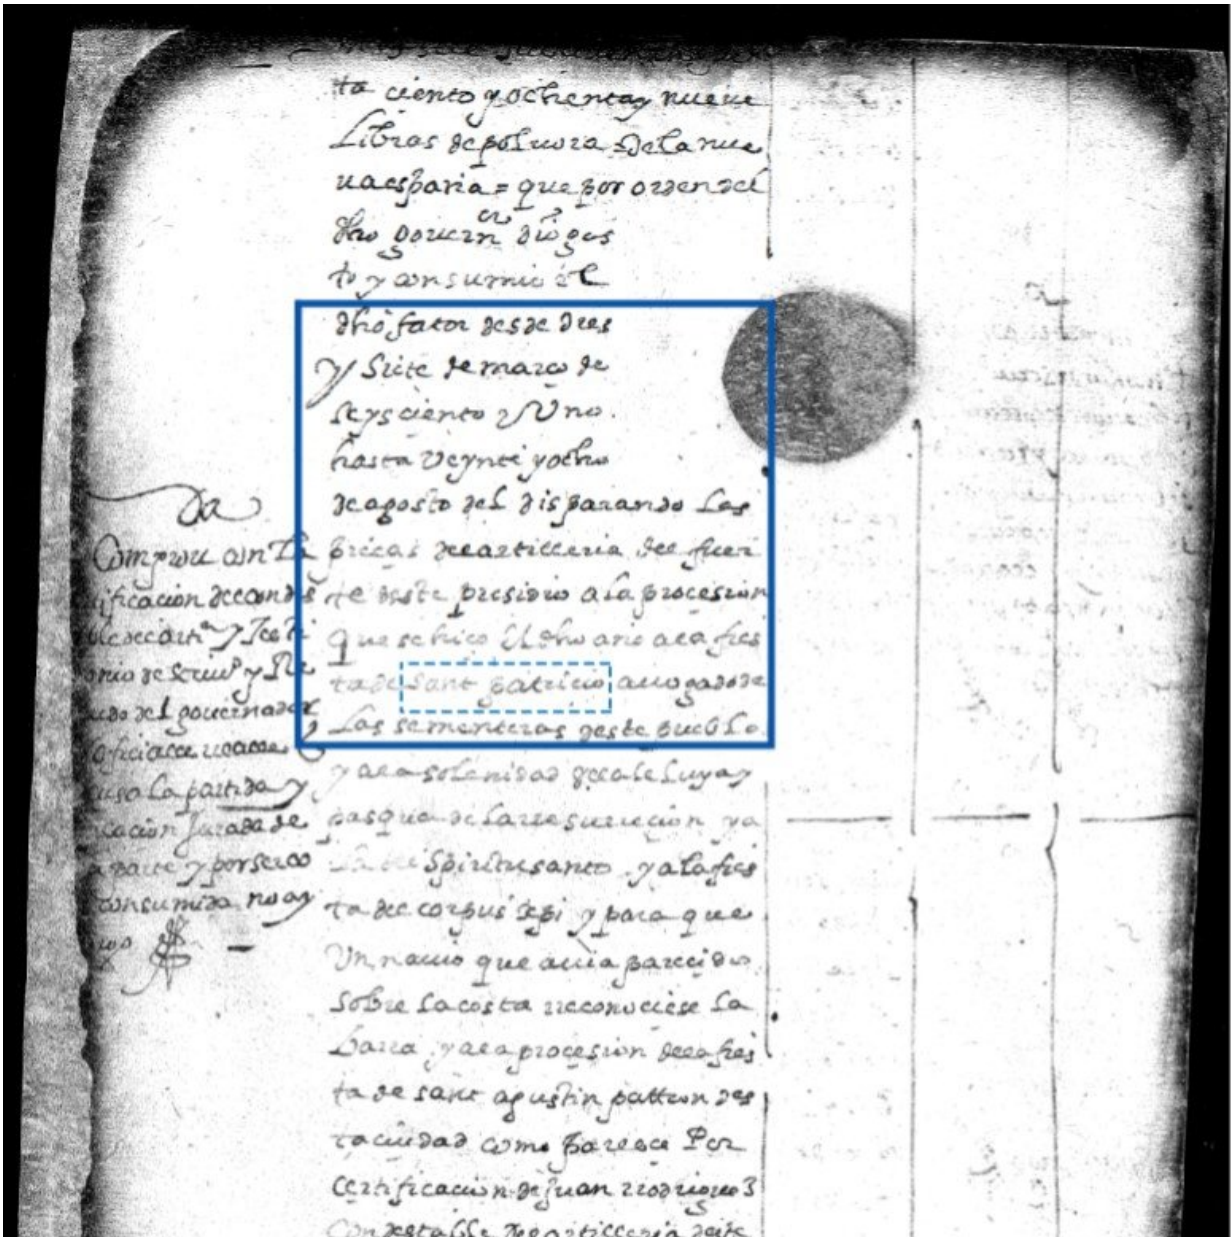 ta ciento y ochenta y nueve
Libras de poluora de la nue
ua españa = que por orden del
dho gouern or dio gas
to y consumio el
dho fator desde dies
y Siete de março de
seysciento y Uno
hasta Veynte y ocho
de agosto del disparando Las
pieças de artilleria del fuer
te deste presidio a la procesion
que se hiço el dho año a la fies
ta de sant patricio auogado de
Las sementeras deste pueblo
y a la solenidad del aleluya y
pasqua de la rresurrecion y a
la del Spiritu santo y a la fies
ta de corpus xpi y para que
Un nauio que auia parecido
sobre la costa rreconociese la
barra y a la procesion de la fies
ta de sant agustin patron des
ta ciudad como parece Por
certificacion de juan rrodrigues
Condestable del artilleria deste
da
Comprou con la
ificacion del condes
ble del arti.ª y testi
onio de scriu.º y
do del gouernador
oficiales
la partida y
icacion jurada de
parte y por ser co
consumida no ay